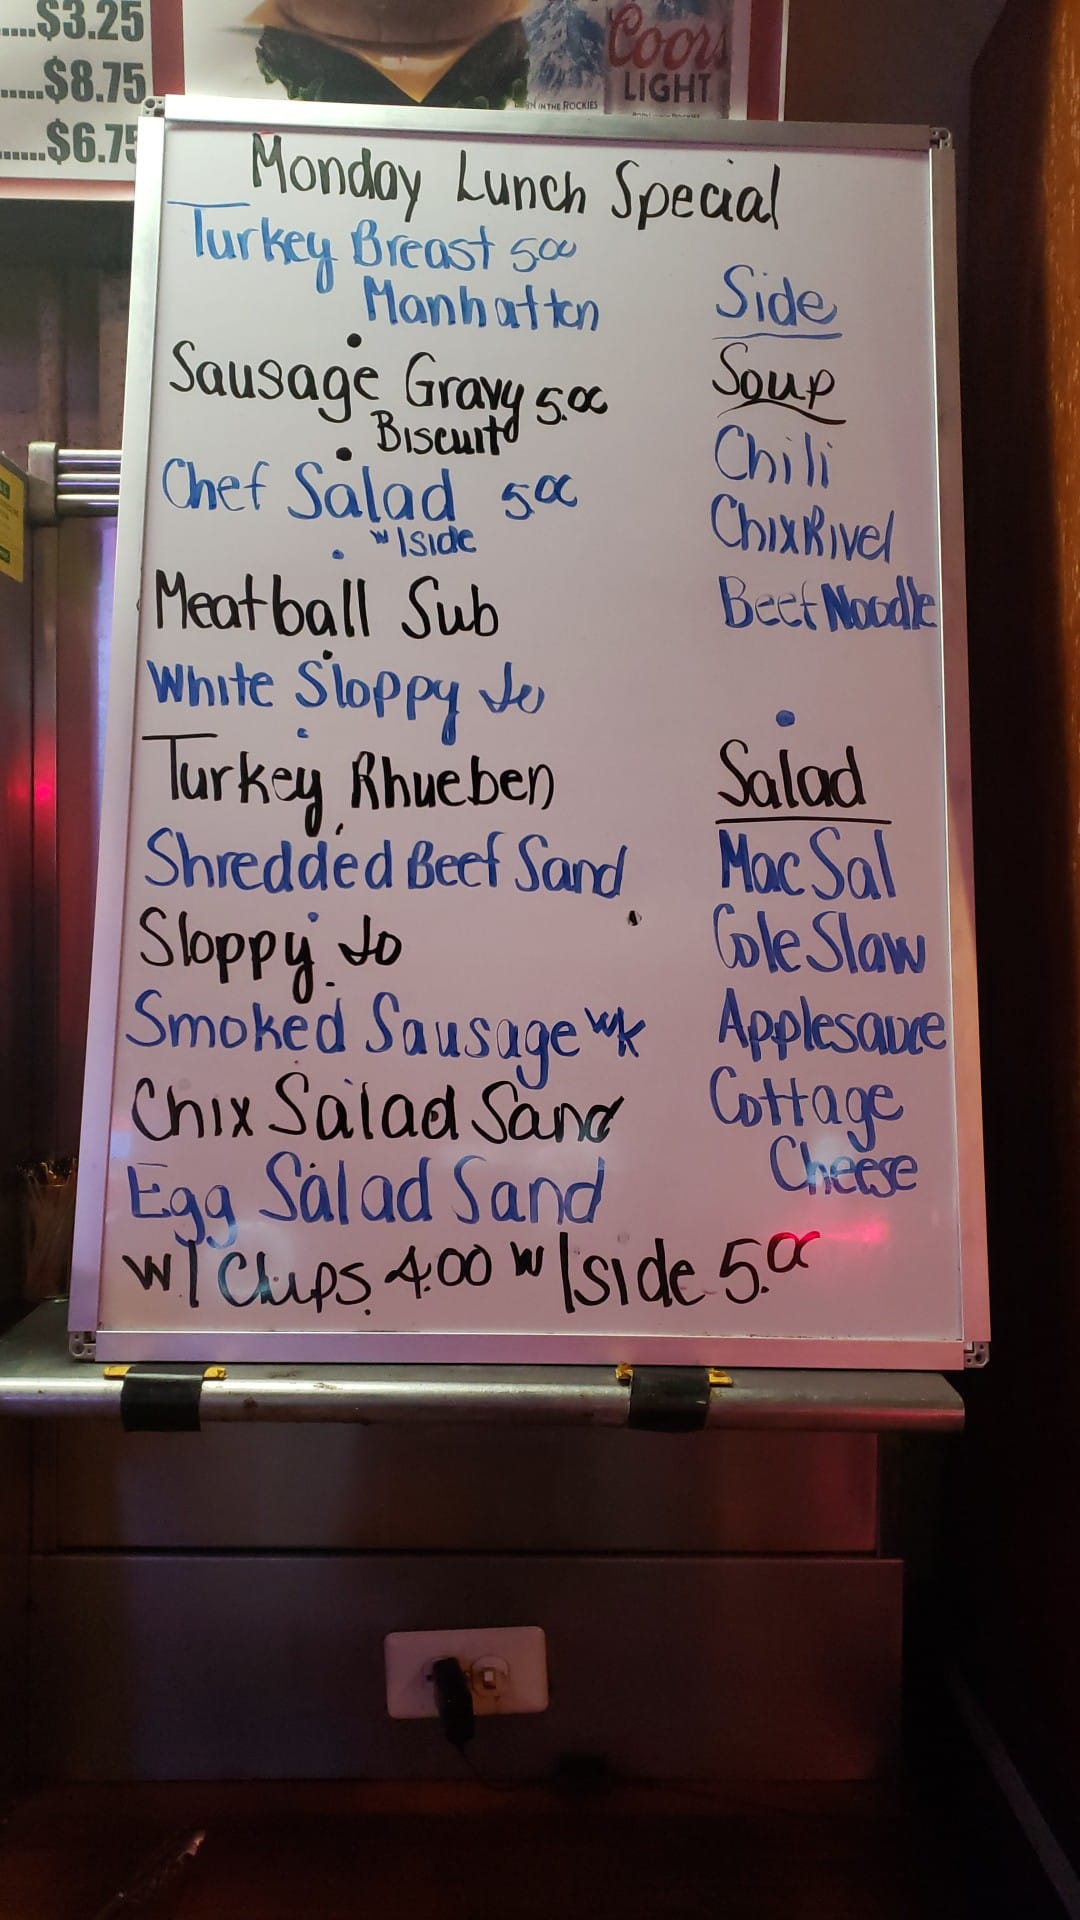 .....$3.25
......$8.75
......$6.75
Coors
LIGHT
BORN IN THE ROCKIES
Monday Lunch Special
Turkey Breast 5.00
Manhattan
Sausage Gravy 5.00
Biscuit
Chef Salad 5.00
w/ side
Meatball Sub
White Sloppy Jo
Turkey Rhueben
Shredded Beef Sand
Sloppy Jo
Smoked Sausage w/k
Chix Salad Sand
Egg Salad Sand
w/ Chips 4.00 w/ side 5.00
Side
Soup
Chili
Chix Rivel
Beef Noodle
Salad
Mac Sal
Cole Slaw
Applesauce
Cottage
Cheese